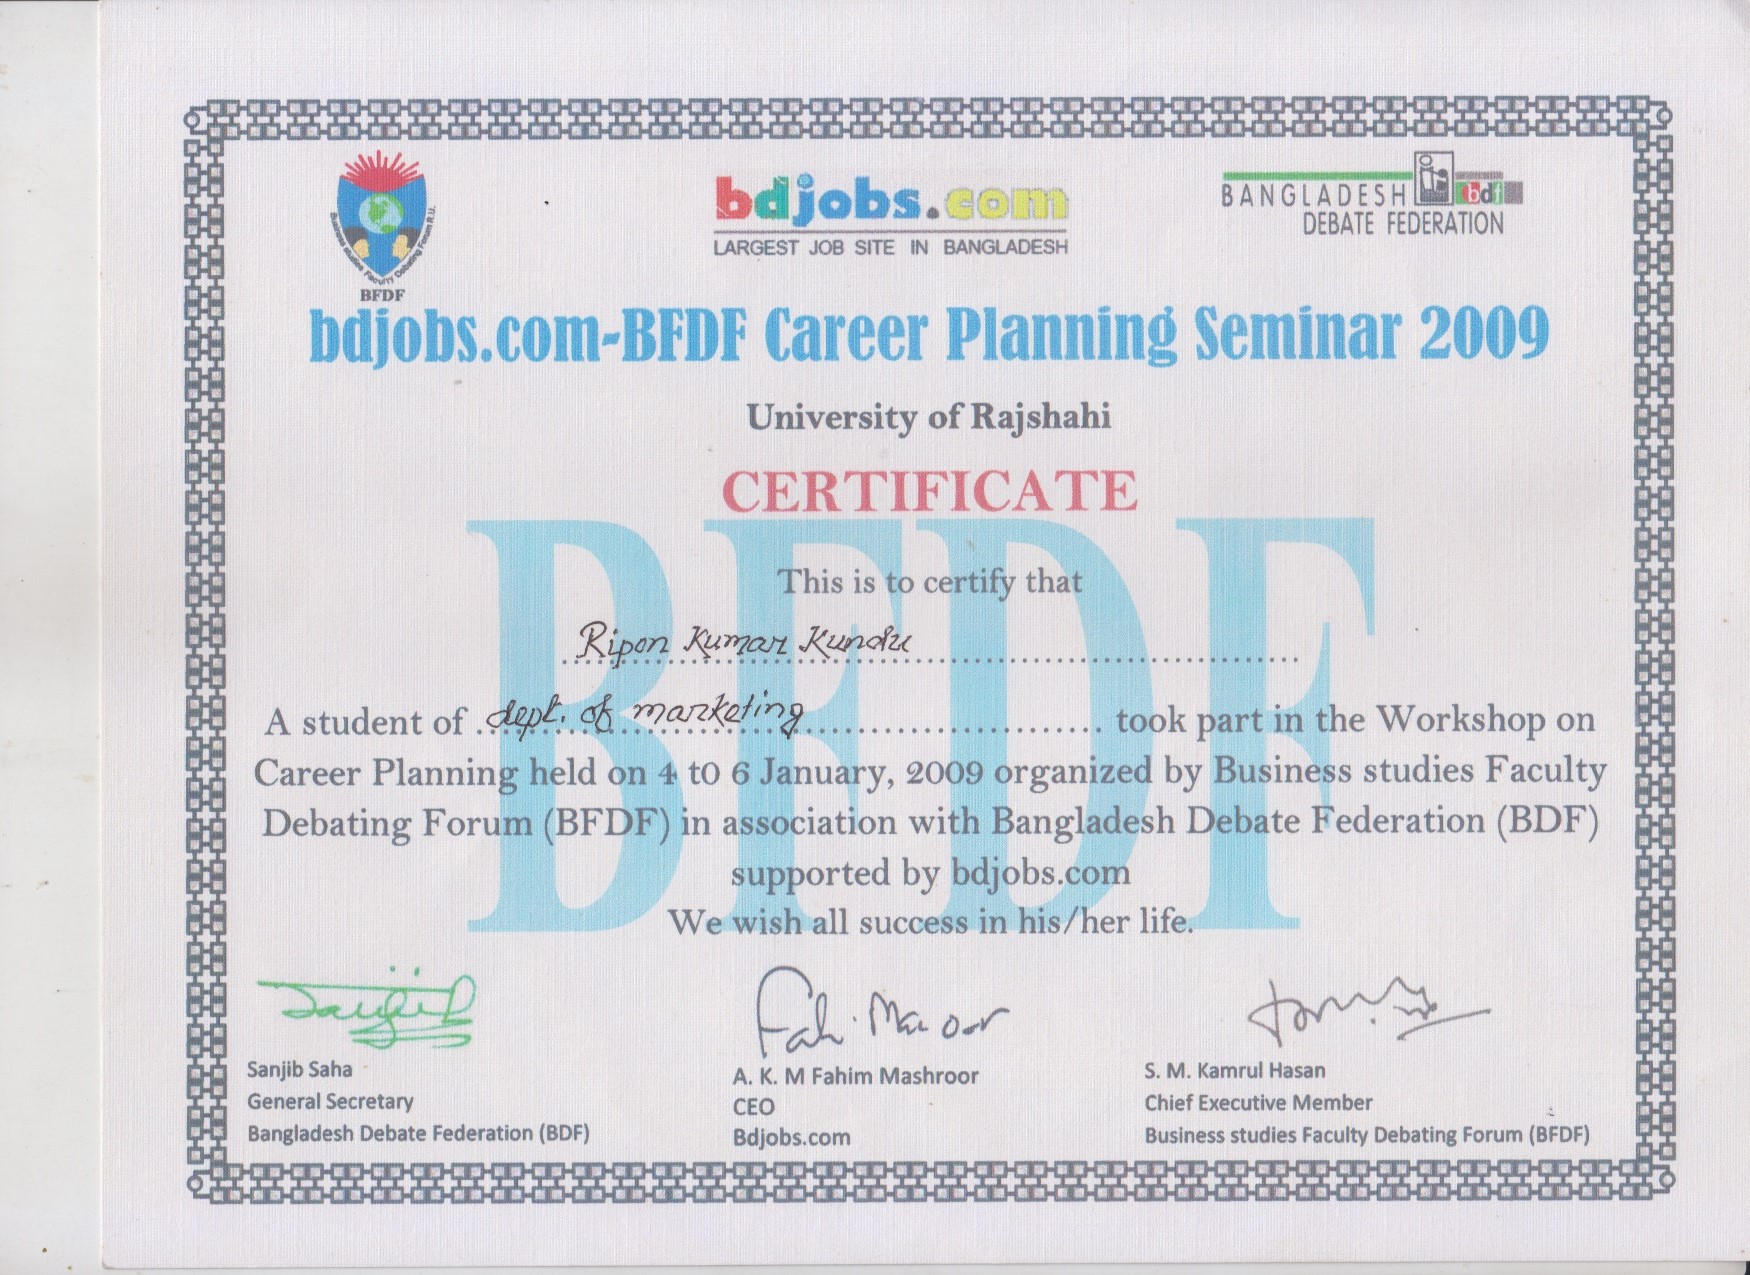 Business studies Faculty Debating Forum R.U.
BFDF
bdjobs.com
LARGEST JOB SITE IN BANGLADESH
BANGLADESH bdf
DEBATE FEDERATION
bdjobs.com-BFDF Career Planning Seminar 2009
University of Rajshahi
CERTIFICATE
BFDF
This is to certify that
Ripon Kumar Kundu
A student of dept. of marketing took part in the Workshop on
Career Planning held on 4 to 6 January, 2009 organized by Business studies Faculty
Debating Forum (BFDF) in association with Bangladesh Debate Federation (BDF)
supported by bdjobs.com
We wish all success in his/her life.
Sanjib Saha
General Secretary
Bangladesh Debate Federation (BDF)
A. K. M Fahim Mashroor
CEO
Bdjobs.com
S. M. Kamrul Hasan
Chief Executive Member
Business studies Faculty Debating Forum (BFDF)